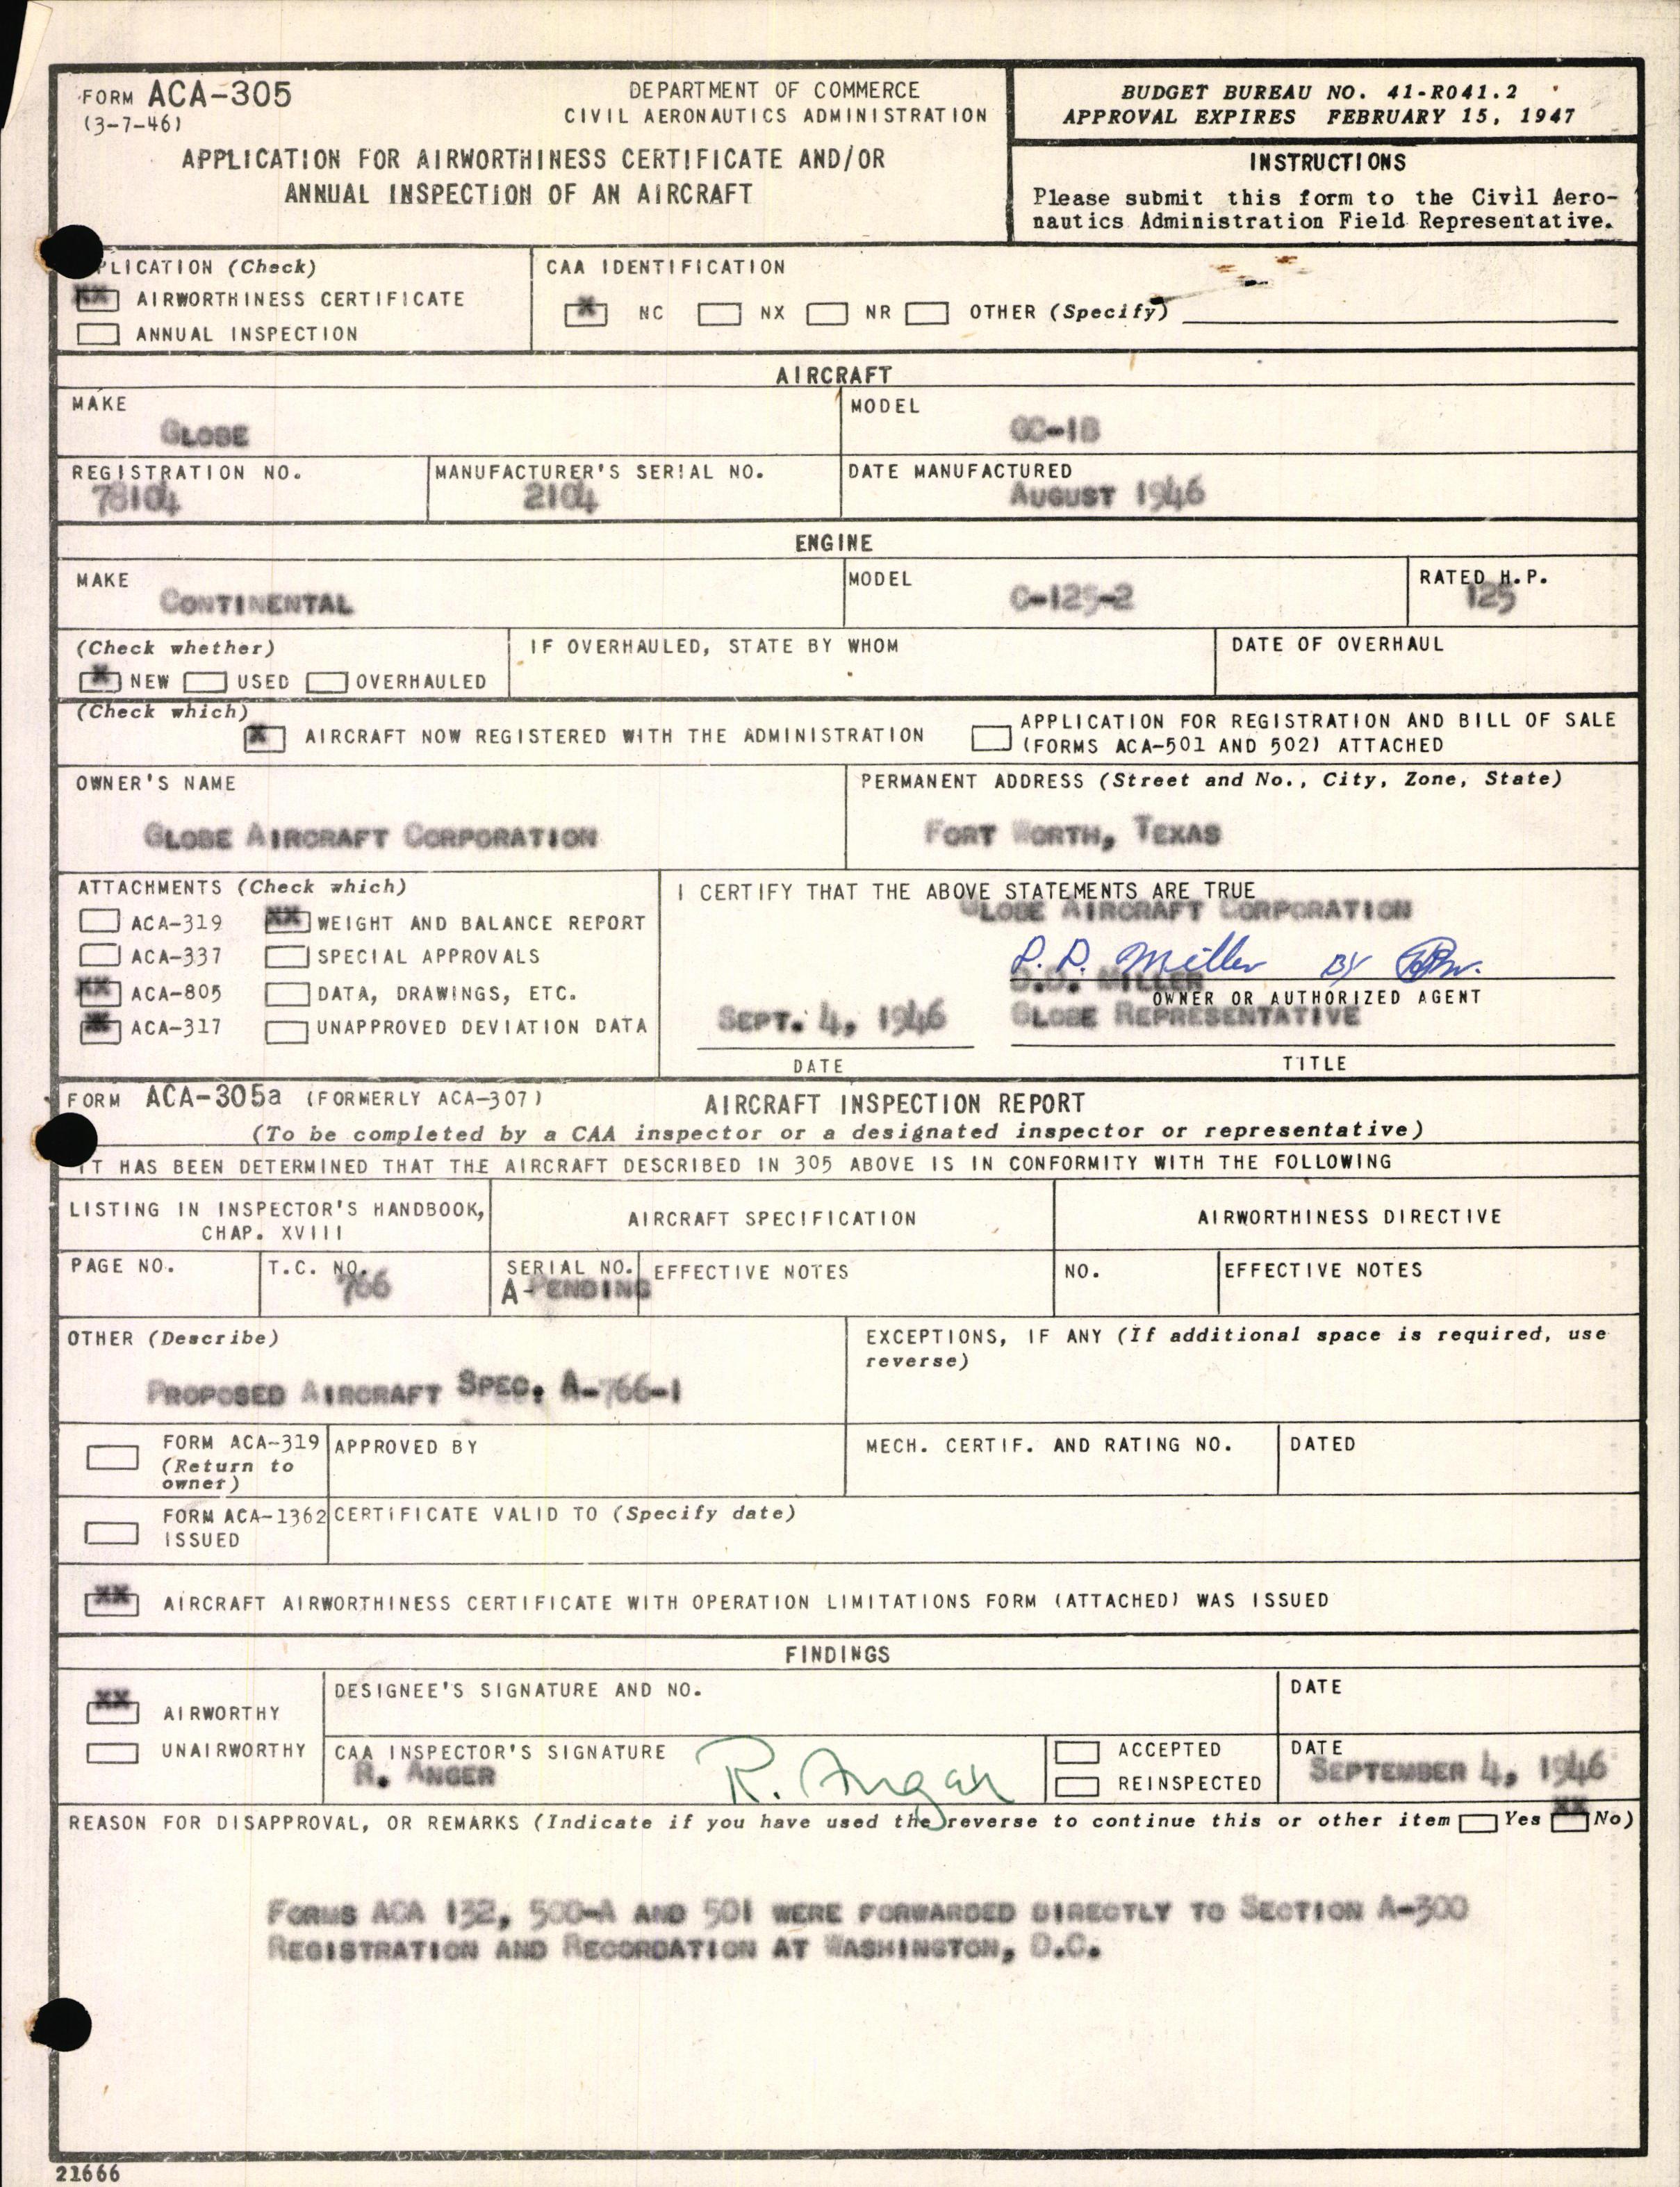 FORM ACA-305
(3-7-46)
DEPARTMENT OF COMMERCE
CIVIL AERONAUTICS ADMINISTRATION
APPLICATION FOR AIRWORTHINESS CERTIFICATE AND/OR
ANNUAL INSPECTION OF AN AIRCRAFT
BUDGET BUREAU NO. 41-R041.2
APPROVAL EXPIRES FEBRUARY 15, 1947
INSTRUCTIONS
Please submit this form to the Civil Aero-
nautics Administration Field Representative.
PLICATION (Check)
XX AIRWORTHINESS CERTIFICATE
ANNUAL INSPECTION
CAA IDENTIFICATION
X NC NX NR OTHER (Specify)
AIRCRAFT
MAKE
GLOBE
MODEL
GC-1B
REGISTRATION NO.
78104
MANUFACTURER'S SERIAL NO.
2104
DATE MANUFACTURED
AUGUST 1946
ENGINE
MAKE
CONTINENTAL
MODEL
C-125-2
RATED H.P.
125
(Check whether)
X NEW USED OVERHAULED
IF OVERHAULED, STATE BY WHOM
DATE OF OVERHAUL
(Check which)
X AIRCRAFT NOW REGISTERED WITH THE ADMINISTRATION
APPLICATION FOR REGISTRATION AND BILL OF SALE
(FORMS ACA-501 AND 502) ATTACHED
OWNER'S NAME
GLOBE AIRCRAFT CORPORATION
PERMANENT ADDRESS (Street and No., City, Zone, State)
FORT WORTH, TEXAS
ATTACHMENTS (Check which)
ACA-319 XX WEIGHT AND BALANCE REPORT
ACA-337 SPECIAL APPROVALS
XX ACA-805 DATA, DRAWINGS, ETC.
ACA-317 UNAPPROVED DEVIATION DATA
I CERTIFY THAT THE ABOVE STATEMENTS ARE TRUE
GLOBE AIRCRAFT CORPORATION
D. D. Miller BY
D.D. MILLER
OWNER OR AUTHORIZED AGENT
SEPT. 4, 1946
GLOBE REPRESENTATIVE
DATE
TITLE
FORM ACA-305a (FORMERLY ACA-307)
AIRCRAFT INSPECTION REPORT
(To be completed by a CAA inspector or a designated inspector or representative)
IT HAS BEEN DETERMINED THAT THE AIRCRAFT DESCRIBED IN 305 ABOVE IS IN CONFORMITY WITH THE FOLLOWING
LISTING IN INSPECTOR'S HANDBOOK,
CHAP. XVIII
AIRCRAFT SPECIFICATION
AIRWORTHINESS DIRECTIVE
PAGE NO.
T.C. NO.
766
SERIAL NO.
A-PENDING
EFFECTIVE NOTES
NO.
EFFECTIVE NOTES
OTHER (Describe)
PROPOSED AIRCRAFT SPEC. A-766-1
EXCEPTIONS, IF ANY (If additional space is required, use
reverse)
FORM ACA-319
(Return to
owner)
APPROVED BY
MECH. CERTIF. AND RATING NO.
DATED
FORM ACA-1362
ISSUED
CERTIFICATE VALID TO (Specify date)
XX AIRCRAFT AIRWORTHINESS CERTIFICATE WITH OPERATION LIMITATIONS FORM (ATTACHED) WAS ISSUED
FINDINGS
XX AIRWORTHY
UNAIRWORTHY
DESIGNEE'S SIGNATURE AND NO.
DATE
CAA INSPECTOR'S SIGNATURE
R. ANGER
R. Anger
ACCEPTED
REINSPECTED
DATE
SEPTEMBER 4, 1946
REASON FOR DISAPPROVAL, OR REMARKS (Indicate if you have used the reverse to continue this or other item Yes XX No)
FORMS ACA 132, 500-A AND 501 WERE FORWARDED DIRECTLY TO SECTION A-300
REGISTRATION AND RECORDATION AT WASHINGTON, D.C.
21666